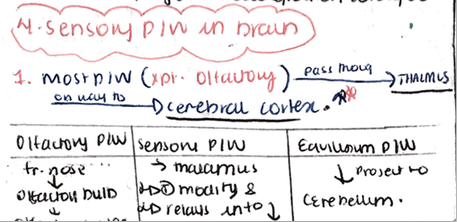 4. sensory P/W in brain
1. most P/W (xpt. olfactory) pass thoug → THALMUS
on way to → cerebral cortex. **
Olfactory P/W | Sensory P/W | Equilibrium P/W
fr. nose | → thalamus | ↓ project to
↓ olfactory bulb | → ① modify & | cerebellum.
↓ | → relays into ↓